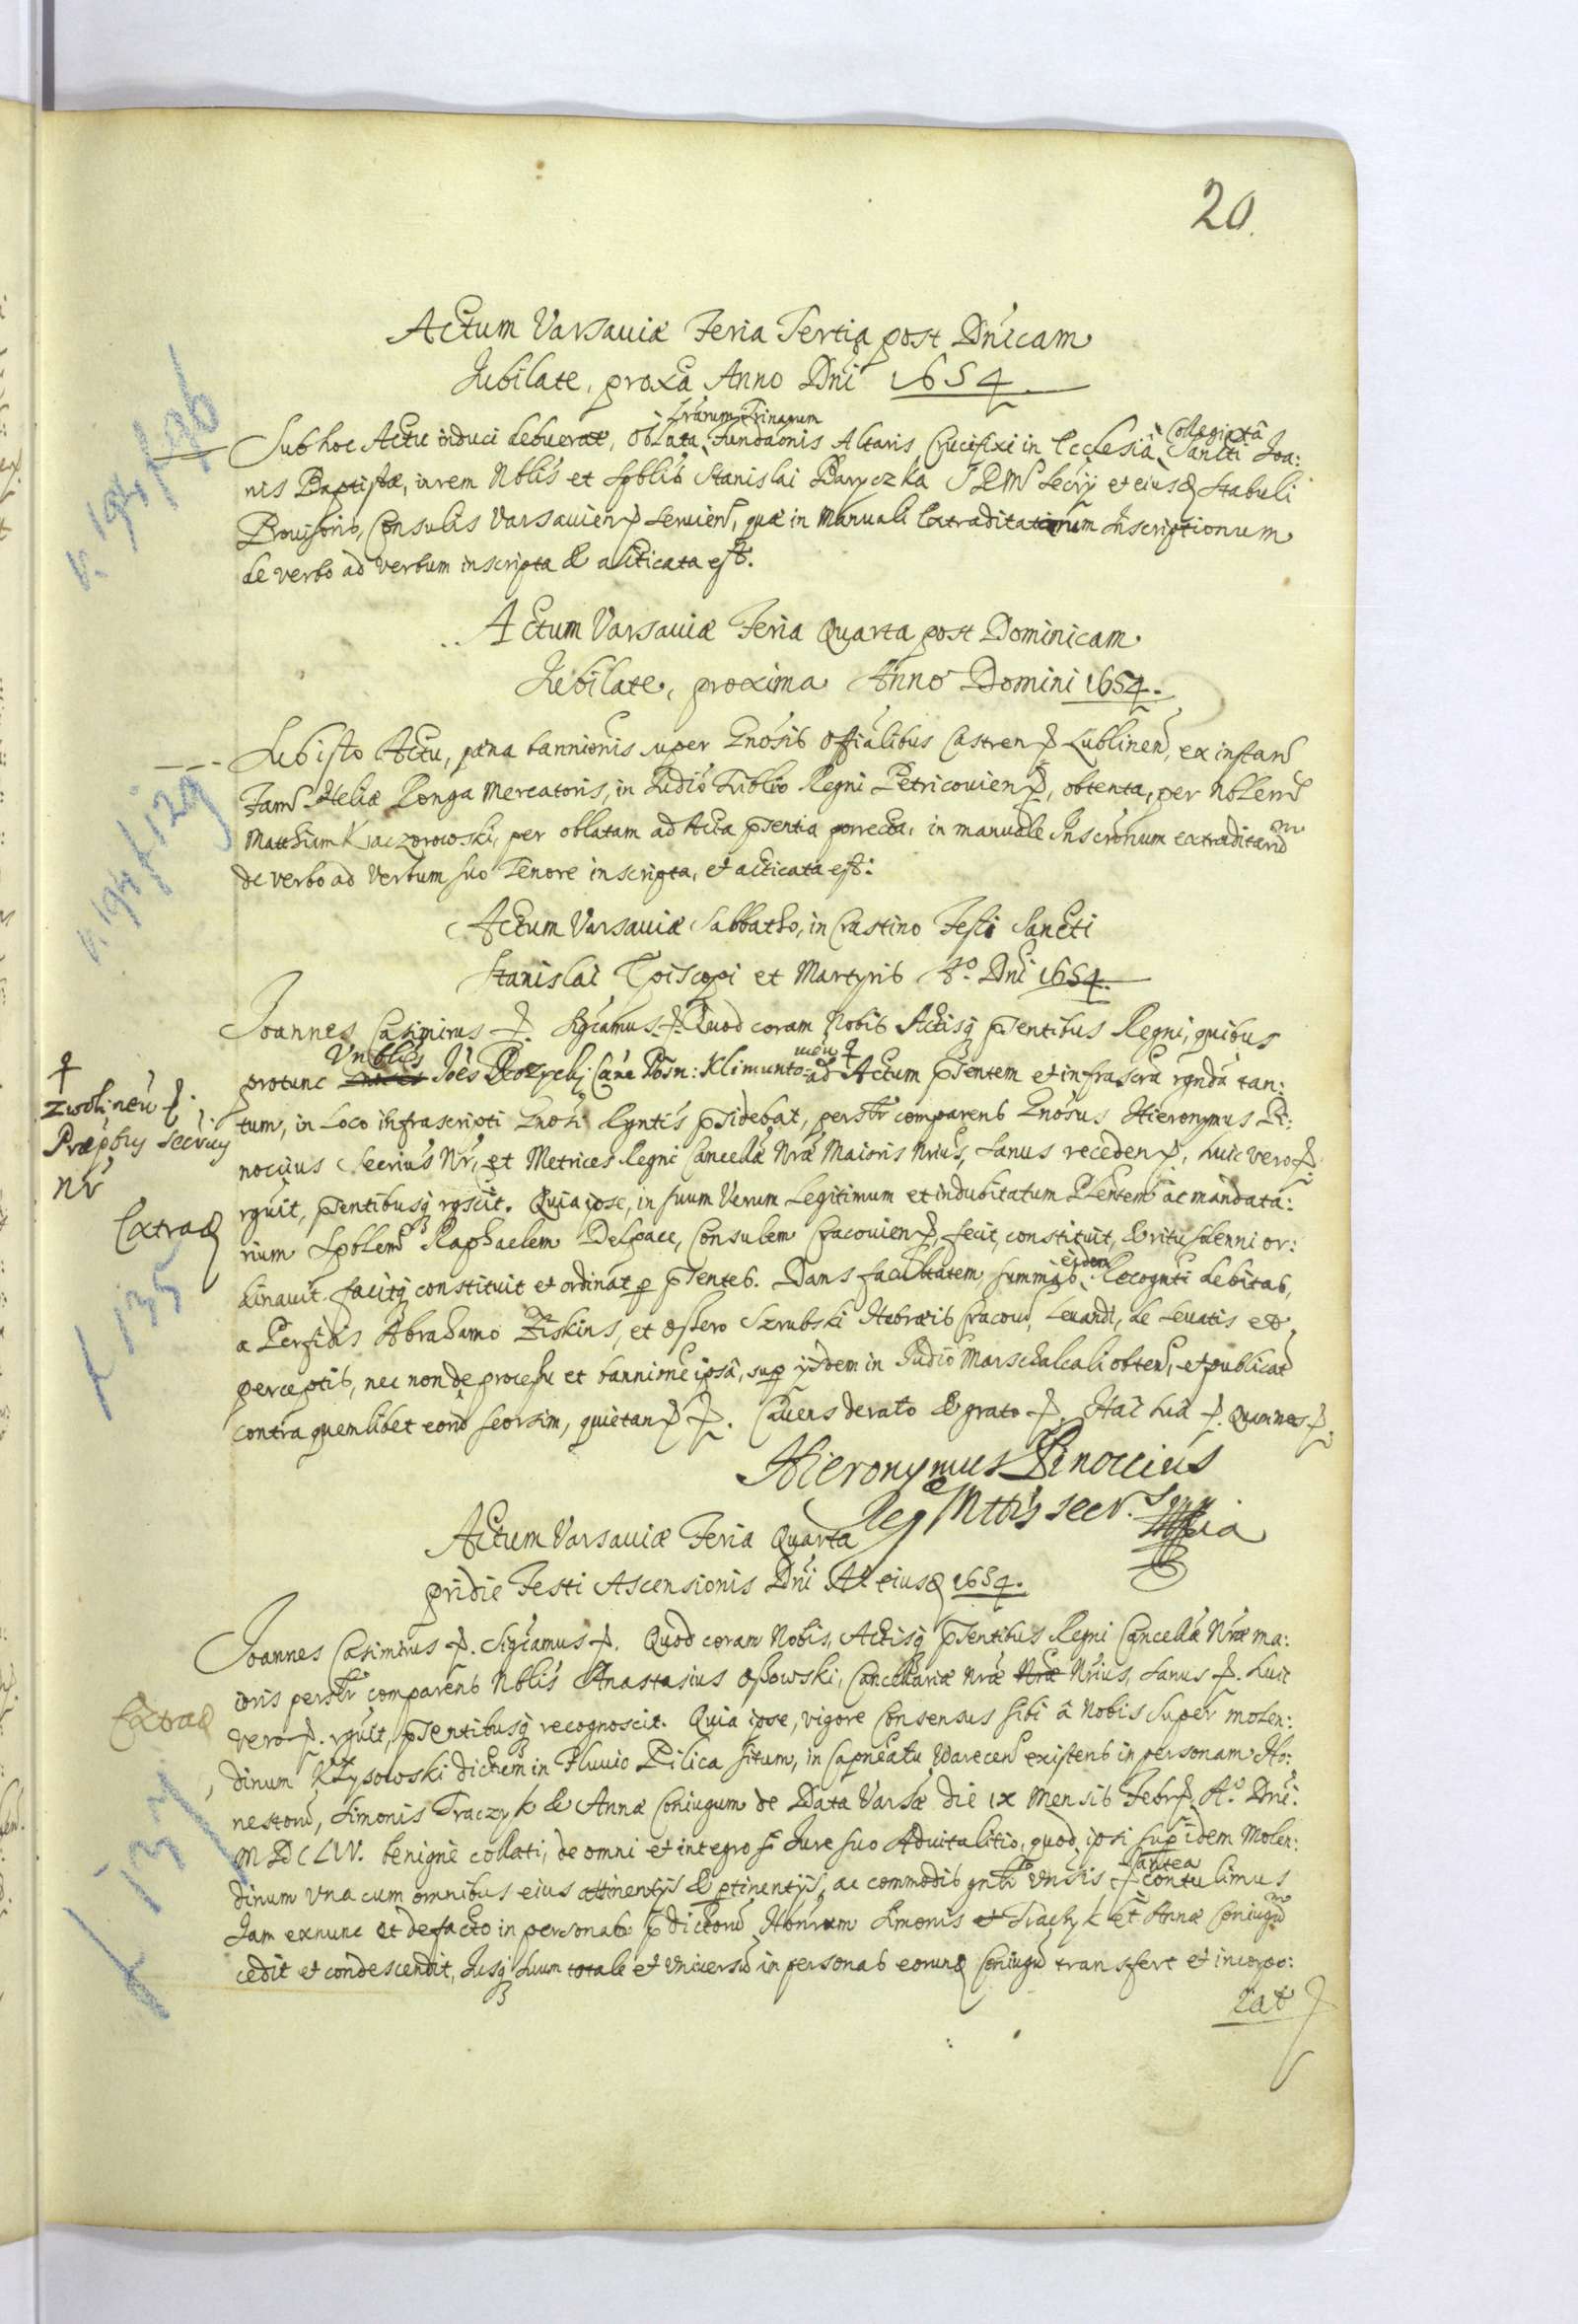 20.
Actum Varsaviæ Feria Tertia post Dnicam
Jubilate, proxa Anno Dni 1654
v. 194 f 96
Lrarum Trinarum
Collegiatâ
Sub hoc Actu induci debuerat, Oblata Fundaonis Altaris Crucifixi in Ecclesiâ Sancti Joa:
nis Baptistæ, in rem Nblis et Spblis Stanislai Baryczka SRM Secrij et eiusq Stabuli
Provisoris, Consulis Varsavien servien, quæ in Manuali Extraditarum Inscriptionum
de verbo ad verbum inscripta & acticata est.
Actum Varsaviæ Feria Quarta post Dominicam
Jubilate, proxima Anno Domini 1654.
v. 194 f 129
Sub isto Actu, pæna bannionis super Gnosis Offialibus Castren Lublinen, ex instan
Fam Heliæ Longa Mercatoris, in Judio Tribli Regni Petricovien, obtenta, per Nblem
Matthiam Kraczorowski, per oblatam ad Acta pntia porrecta, in manuale Inscronum extraditaru
de verbo ad verbum suo Tenore inscripta, et acticata est.
Actum Varsaviæ Sabbatho, in Crastino Festi Sancti
Stanislai Episcopi et Martyris Ao. Dni 1654.
Joannes Casimirus Sigcamus Quod coram Nobis Actisq pntibus Regni, quibus
Vnblis
protunc Joes Rozycki Cane Posn: Klimunto ad Actum pntem et infrascra rgnda tan:
Zwolinen
Præpbus Secrius
Nr
tum, in Loco infrascripti Gnosi Rgntis psidebat, persltr comparens Gnosus Hieronymus Pi:
noccius Secrius Nr, et Metrices Regni Cancellæ Nræ Maioris Nrius, sanus receden, huic vero
rguit, pntibusq rgscit. Quia ipse, in suum Verum Legitimum et indubitatum Plentem ac mandata:
Extrad
rium Spblem Raphaelem Delpace, Consulem Cracovien, fecit, constituit, & ritu solenni or:
eidem
dinavit facitq constituit et ordinat p pntes. Dans facultatem summas Recognti debitas,
f 135
a Perfidis Abrahamo Ziskins, et Ossero Szrubski Hebræis Cracov, Levandi, de Levatis et
perceptis, nec non de processu et bannione ipsâ, sup ijsdem in Judio Marschalcali obten, et publicat
contra quemlibet eoru seorsim, quietan. Cavens de rato & grato
Hieronymus Pinoccius
Reg Mttis secr. mpia
Actum Varsaviæ Feria Quarta
pridie Festi Ascensionis Dni Ao eiusd 1654.
Joannes Casimirus Sigcamus Quod coram Nobis, Actisq pntibus Regni Cancellæ Nræ ma:
ioris persltr comparens Nblis Anastasius Ossowski, Cancellariæ Nræ Nræ Nrius, sanus huic
Extrad
vero rguit, pntibusq recognoscit. Quia ipse, vigore Consensus sibi â Nobis super molen:
dinum Krysowski dictum in Fluvio Pilica situm, in Capneatu Varecen existens in personam Ho:
f 137
nestoru, Simonis Traczyk & Annæ Coniugum de Data Varsæ die IX Mensis Febr Ao. Dni
MDCLIV. benignè collati, de omni et integro Jure suo Advitalitio, quod ipsi sup idem Molen:
antea
dinum vna cum omnibus eius attinentijs & ptinentijs, ac commodis gnltr vnisis contulimus
Jam exnunc et defacto in personas pdictoru Honrum Simonis et Traczyk et Annæ Coniugu
cedit et condescendit, Jusq suum totale et vniversu in personas eorund Coniugu transfert et incorpo:
rat